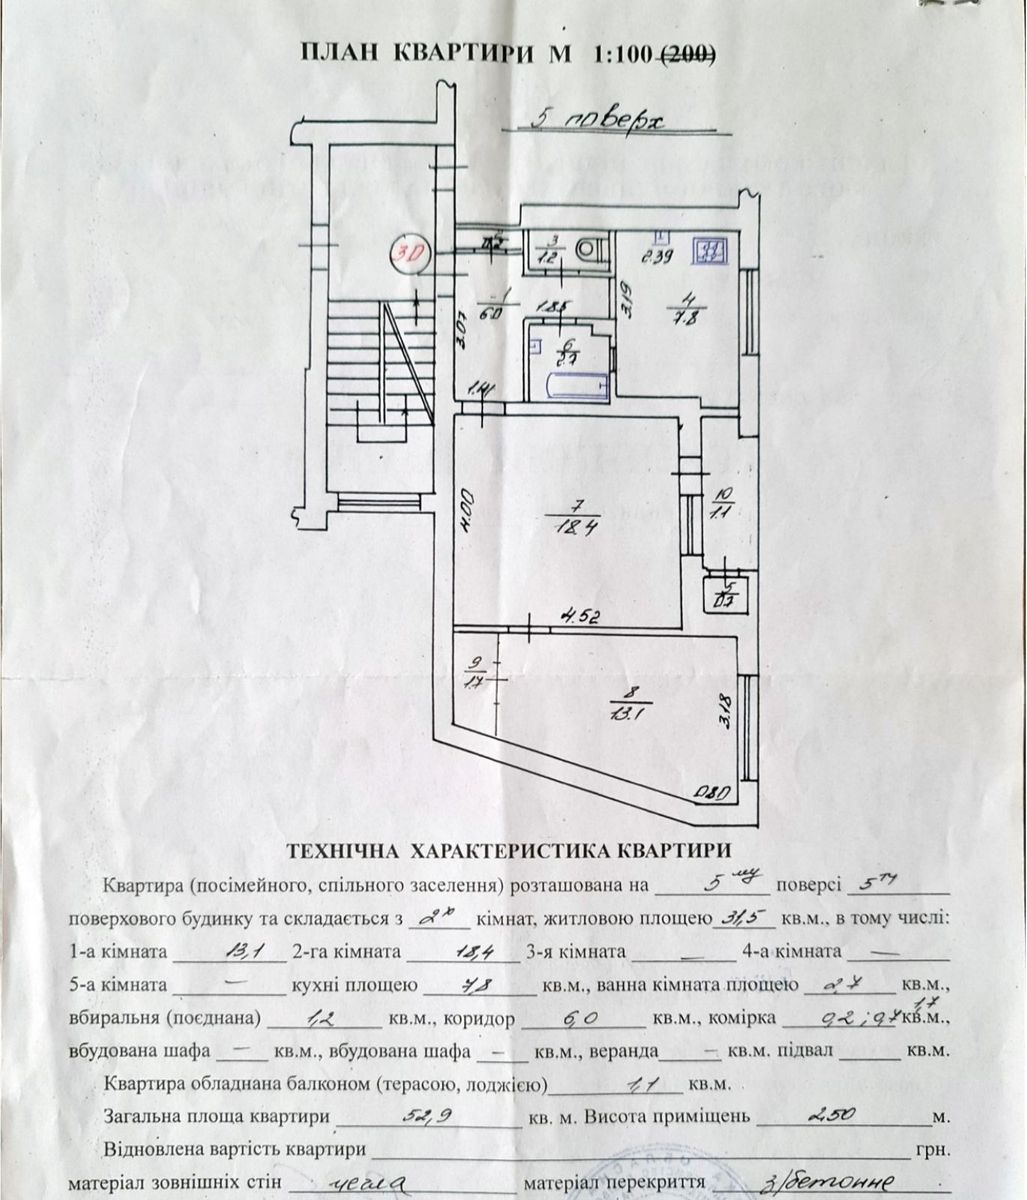 ПЛАН КВАРТИРИ М 1:100 (200)
5 поверх
0.2
3
1.2
2.39
30
1
6.0
1.85
3.19
4
7.8
3.07
6
2.7
1.41
4.00
7
18.4
10
1.1
5
0.7
4.52
9
1.7
8
13.1
3.18
0.80
ТЕХНІЧНА ХАРАКТЕРИСТИКА КВАРТИРИ
Квартира (посімейного, спільного заселення) розташована на 5 му поверсі 5 ти
поверхового будинку та складається з 2х кімнат, житловою площею 31,5 кв.м., в тому числі:
1-а кімната 13,1 2-га кімната 18,4 3-я кімната — 4-а кімната —
5-а кімната — кухні площею 7,8 кв.м., ванна кімната площею 2,7 кв.м.,
вбиральня (поєднана) 1,2 кв.м., коридор 6,0 кв.м., комірка 0,2; 0,7 1,7 кв.м.,
вбудована шафа — кв.м., вбудована шафа — кв.м., веранда — кв.м. підвал кв.м.
Квартира обладнана балконом (терасою, лоджією) 1,1 кв.м.
Загальна площа квартири 52,9 кв. м. Висота приміщень 2.50 м.
Відновлена вартість квартири грн.
матеріал зовнішніх стін цегла матеріал перекриття з/бетонне